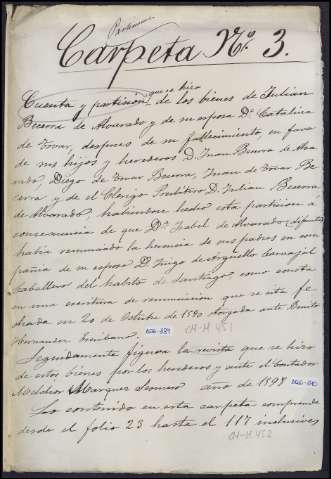 Pertenece
Carpeta Nº. 3.
Cuenta y partición que se hizo de los bienes de Julian
Becerra de Alvarado y de su esposa Dª Catalina
de Tovar, despues de su fallecimiento, en favor
de sus hijos y herederos D. Juan Becerra de Alva
rado, Diego de Tovar Becerra, Juan de Tovar Be
cerra y de el Clerigo Presbitero D. Julian Becerra
de Alvarado, habiendose hecho esta partición á
consecuencia de que Dª Isabel de Alvarado (difunta)
habia renunciado la herencia de sus padres en com
pañia de su esposo D. Iñigo de Argüello Carvajal
Caballero del habito de Santiago, como consta
en una escritura de renunciacion que se otó fe
chada en 20 de Octubre de 1580 otorgada ante Benito
Hernandez Escribano.
OGG-889
OH-H 451
Seguidamente figura la revista que se hizo
de estos bienes por los herederos y ante el Contador
Melchor Marquez año de 1598
OGG-890
Lo contenido en esta carpeta comprende
desde el folio 23 hasta el 117 inclusives
OH-H 452